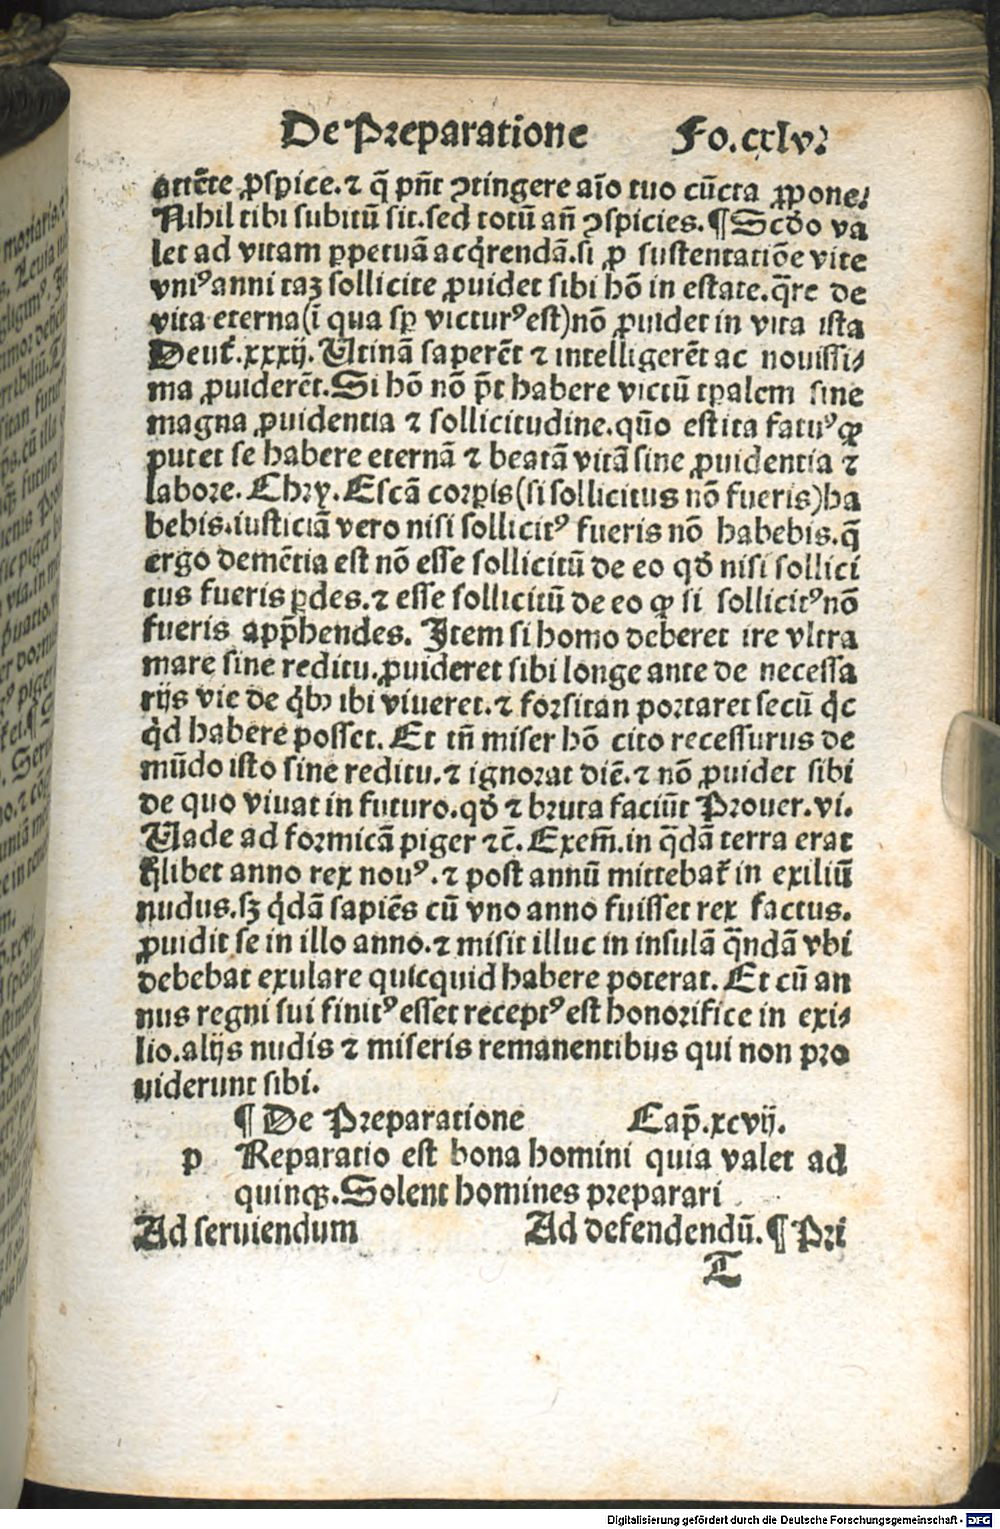 De Preparatione Fo.cxlv.
attẽte ꝓspice. ⁊ q̃ pñt ꝯtingere aĩo tuo cũcta ꝓpone.
Nihil tibi subitũ sit. sed totũ añ ꝯspicies. ¶ Scđo va
let ad vitam ꝑpetuã acq̇rendã. si ꝓ sustentatiõe vite
vniꝰ anni taꝫ sollicite ꝓuidet sibi hõ in estate. q̃re de
vita eterna (ĩ qua sꝑ victurꝰ est) nõ ꝓuidet in vita ista
Deut̃. xxxij. Utinã saperẽt ⁊ intelligerẽt ac nouissi-
ma ꝓuiderẽt. Si hõ nõ p̃t habere victũ tꝑalem sine
magna ꝓuidentia ⁊ sollicitudine. quõ est ita fatuꝰ ꝙ
putet se habere eternã ⁊ beatã vitã sine ꝓuidentia ⁊
labore. Chry. Escã corꝑis (si sollicitus nõ fueris) ha
bebis. iusticiã vero nisi sollicitꝰ fueris nõ habebis. q̃
ergo demẽtia est nõ esse sollicitũ de eo qđ nisi sollici
tus fueris ꝑdes. ⁊ esse sollicitũ de eo ꝙ si sollicitꝰ nõ
fueris app̃hendes. Item si homo deberet ire vltra
mare sine reditu. ꝓuideret sibi longe ante de necessa
rijs vie de q̇bꝰ ibi viueret. ⁊ forsitan portaret secũ q̇c
q̇d habere posset. Et tñ miser hõ cito recessurus de
mũdo isto sine reditu. ⁊ ignorat diẽ. ⁊ nõ ꝓuidet sibi
de quo viuat in futuro. qđ ⁊ bruta faciũt Prouer. vi.
Uade ad formicã piger ⁊c̃. Exem̃. in q̃dã terra erat
q̃libet anno rex nouꝰ. ⁊ post annũ mittebat̃ in exiliũ
nudus. sꝫ q̇dã sapiẽs cũ vno anno fuisset rex factus.
ꝓuidit se in illo anno. ⁊ misit illuc in insulã q̃ndã vbi
debebat exulare quicquid habere poterat. Et cũ an
nus regni sui finitꝰ esset receptꝰ est honorifice in exi-
lio. alijs nudis ⁊ miseris remanentibus qui non pro
uiderunt sibi.
¶ De Preparatione Cap̃. xcvij.
p Reparatio est bona homini quia valet ad
quinqꝫ. Solent homines preparari
Ad seruiendum Ad defendendũ. ¶ Pri
T
Digitalisierung gefördert durch die Deutsche Forschungsgemeinschaft - DFG